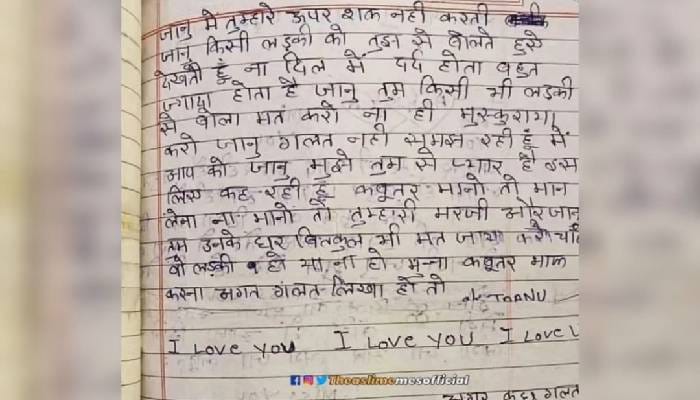 जानु मे तुम्हारे ऊपर शक नही करती
जानु किसी लड़की को तुझ से बोलते हुऐ
देखती हूँ ना दिल में दर्द होता बहुत
ज्यादा होता है जानु तुम किसी भी लड़की
से बोला मत करो ना ही मुस्कुराया
करो जानु गलत नही समझ रही हूँ में
आप को जानु मुझे तुम से प्यार है इस
लिए कह रही हूँ कबूतर मानो तो मान
लेना ना मानो तो तुम्हारी मरजी और जान
तुम उनके घर बिलकुल भी मत जाया करो चाहे
वो लड़की हो या ना हो कबूतर माफ
करना अगत गलत लिखा हो तो
JAANU
I Love you I Love you I Love
Theaslimemesofficial
अगर कुछ गलत